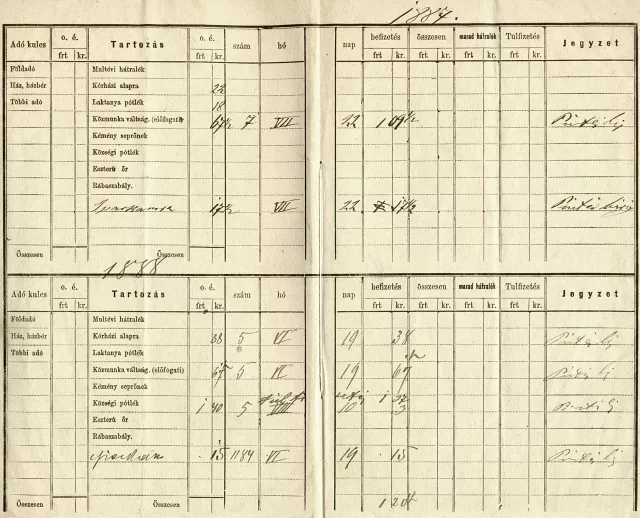 1887.
Adó kulcs o. é. Tartozás o. é. szám hó nap befizetés összesen marad hátralék Tulfizetés Jegyzet
frt kr. frt kr. frt kr. frt kr. frt kr. frt kr.
Földadó Multévi hátralék
Ház, házbér Kórházi alapra 22
Többi adó Laktanya pótlék 18
Közmunka váltság. (előfogati) 67½ 7 VII 22 1 09½
Kémény seprőnek
Községi pótlék
Eszterű őr
Rábaszabály.
17½ VII 22 17½
Összesen Összesen
1888
Adó kulcs o. é. Tartozás o. é. szám hó nap befizetés összesen marad hátralék Tulfizetés Jegyzet
frt kr. frt kr. frt kr. frt kr. frt kr. frt kr.
Földadó Multévi hátralék
Ház, házbér Kórházi alapra 38 5 VI 19 38
Többi adó Laktanya pótlék
Közmunka váltság. (előfogati) 67 5 VI 19 67
Kémény seprőnek
Községi pótlék 1 40 5 VIII 10 1 37
3
Eszterű őr
Rábaszabály.
15 1184 VI 19 15
Összesen Összesen 1 20